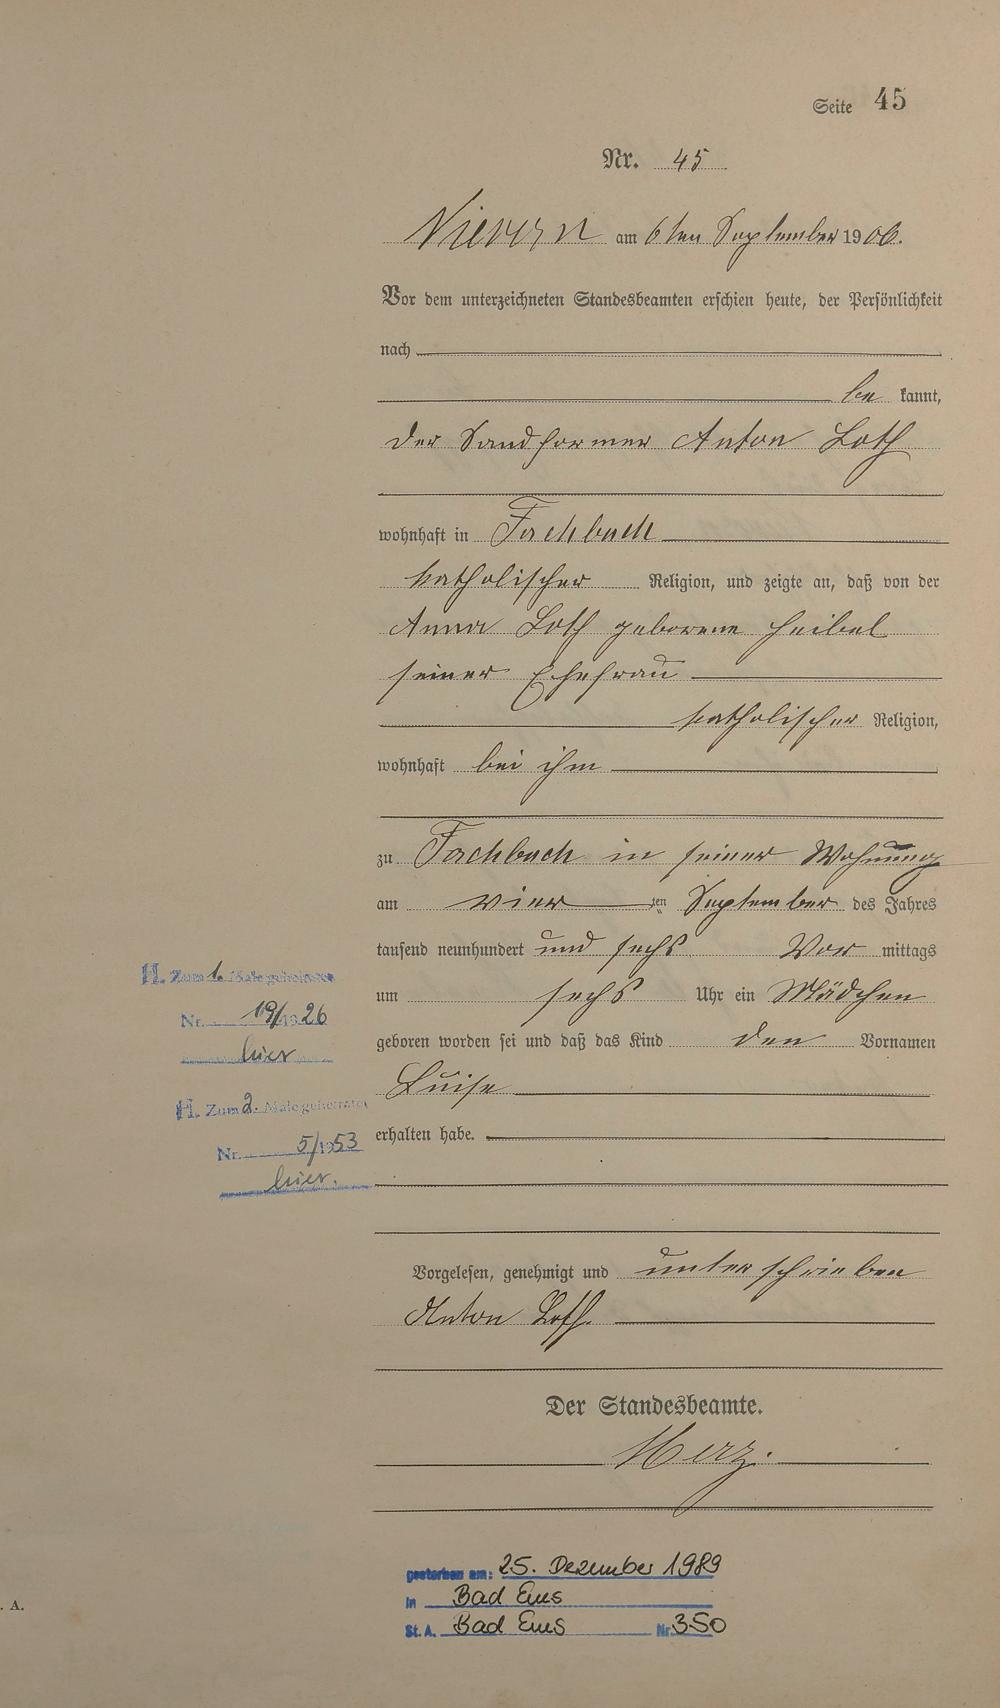 Seite 45
Nr. 45
Nievern am 6ten September 1906.
Vor dem unterzeichneten Standesbeamten erschien heute, der Persönlichkeit
nach
be kannt,
der Sandformer Anton Loth
wohnhaft in Fachbach
katholischer Religion, und zeigte an, daß von der
Anna Loth geborene Heibel
seiner Ehefrau
katholischer Religion,
wohnhaft bei ihm
zu Fachbach in seiner Wohnung
am vier ten September des Jahres
tausend neunhundert und sechs Vor mittags
um sechs Uhr ein Mädchen
geboren worden sei und daß das Kind den Vornamen
Luise
erhalten habe.
H. Zum 1. Male geheiratet
Nr. 19/1926
hier
H. Zum 2. Male geheiratet
Nr. 5/1953
hier.
Vorgelesen, genehmigt und unterschrieben
Anton Loth.
Der Standesbeamte.
Merz.
gestorben am: 25. Dezember 1989
in Bad Ems
St. A. Bad Ems Nr. 350
. A.